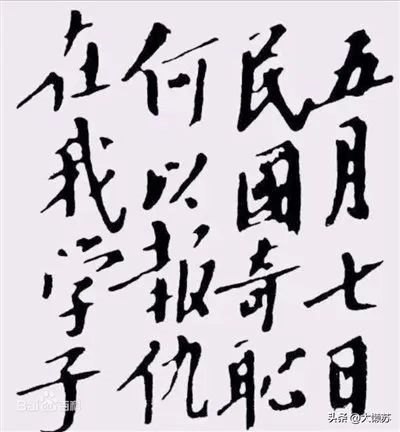 五月七日
民國奇恥
何以报仇
在我学子
Baidu百科
头条 @大懒苏